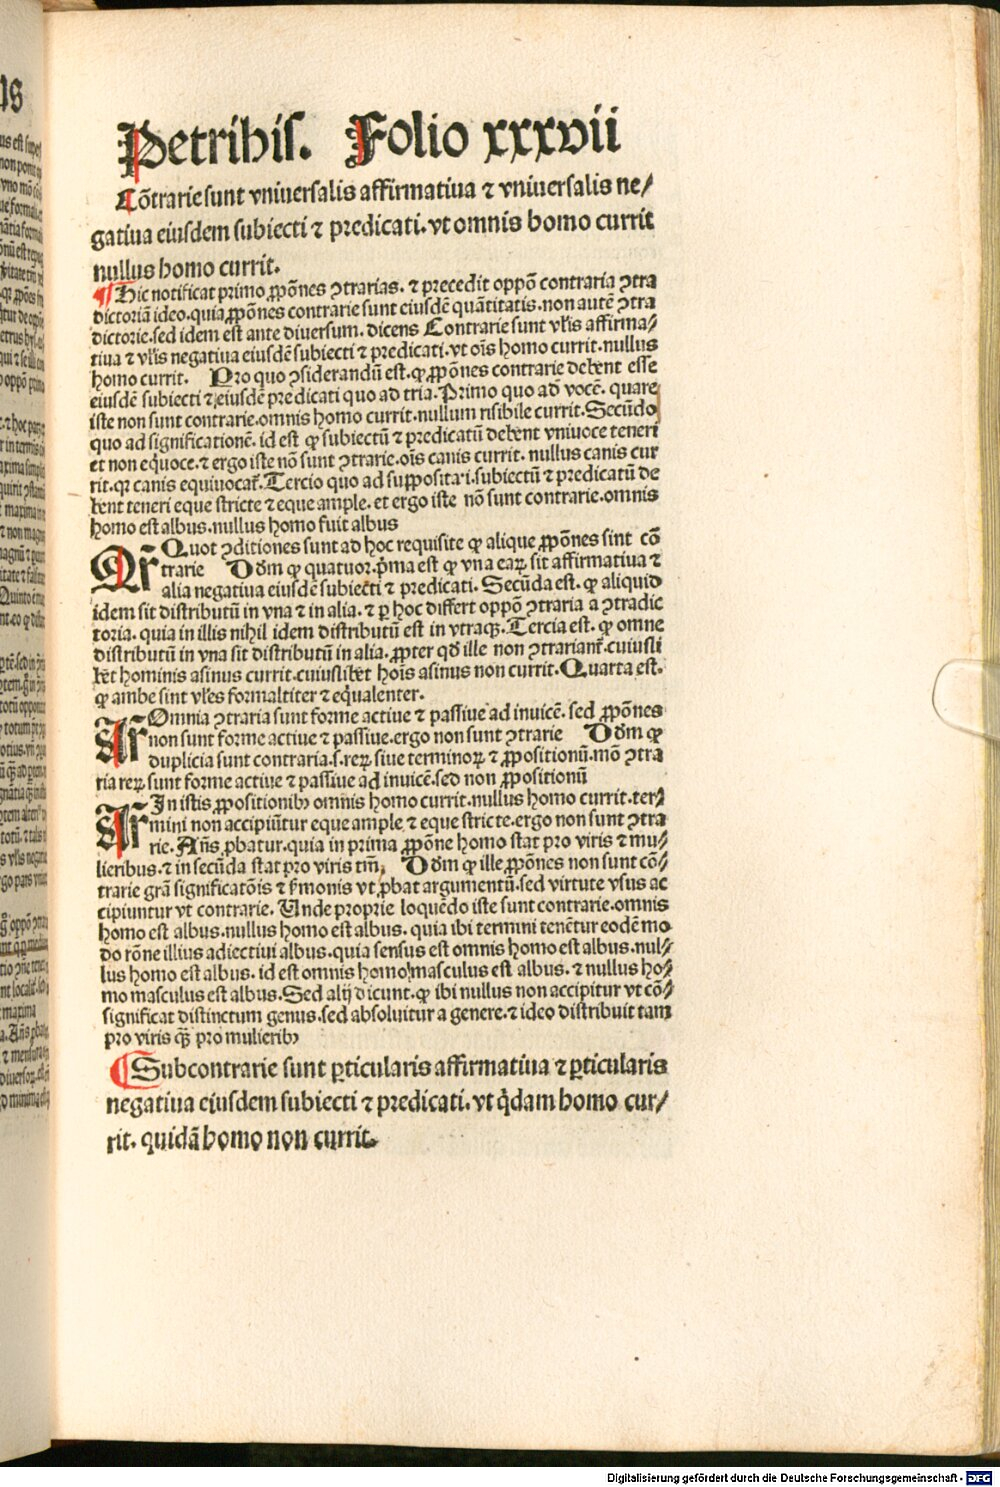 Petrihis. Folio xxxvii
Cõtrarie sunt vniuersalis affirmatiua ⁊ vniuersalis ne⸗
gatiua eiusdem subiecti ⁊ predicati. vt omnis homo currit
nullus homo currit.
¶ Hic notificat primo ꝓpões ꝯtrarias. ⁊ precedit oppõ contraria ꝯtra
dictoriã ideo. quia ꝓpões contrarie sunt eiusdẽ quãtitatis. non autẽ ꝯtra
dictorie. sed idem est ante diuersum. dicens Contrarie sunt vl̃is affirma⸗
tiua ⁊ vl̃is negatiua eiusdẽ subiecti ⁊ predicati. vt oĩs homo currit. nullus
homo currit. Pro quo ꝯsiderandũ est. ꝙ ꝓpões contrarie debent esse
eiusdẽ subiecti ⁊ eiusdẽ predicati quo ad tria. Primo quo ad vocẽ. quare
iste non sunt contrarie. omnis homo currit. nullum risibile currit. Secũdo
quo ad significationẽ. id est ꝙ subiectũ ⁊ predicatũ debent vniuoce teneri
et non equoce. ⁊ ergo iste nõ sunt ꝯtrarie. oĩs canis currit. nullus canis cur
rit. qꝛ canis equiuocat̃. Tercio quo ad supposita. i. subiectũ ⁊ predicatũ de
bent teneri eque stricte ⁊ eque ample. et ergo iste nõ sunt contrarie. omnis
homo est albus. nullus homo fuit albus
Qr̃ Quot ꝯditiones sunt ad hoc requisite ꝙ alique ꝓpões sint cõ
trarie Dõm ꝙ quatuor. p̃ma est ꝙ vna eaꝝ sit affirmatiua ⁊
alia negatiua eiusdem subiecti ⁊ predicati. Secũda est. ꝙ aliquid
idem sit distributũ in vna ⁊ in alia. ⁊ ꝑ hoc differt oppõ ꝯtraria a ꝯtradic
toria. quia in illis nihil idem distributũ est in vtraqꝫ. Tercia est. ꝙ omne
distributũ in vna sit distributũ in alia. ꝓpter qd̃ ille non ꝯtrariant̃. cuiusli
bet hominis asinus currit. cuiuslibet hoĩs asinus non currit. Quarta est.
ꝙ ambe sint vl̃es formaltiter ⁊ eq̃ualenter.
Ar̃ Omnia ꝯtraria sunt forme actiue ⁊ passiue ad inuicẽ. sed ꝓpões
non sunt forme actiue ⁊ passiue. ergo non sunt ꝯtrarie Dõm ꝙ
duplicia sunt contraria. s. reꝝ siue terminoꝝ ⁊ ꝓpositionũ. mõ ꝯtra
ria reꝝ sunt forme actiue ⁊ passiue ad inuicẽ. sed non ꝓpositionũ
Ar̃ In istis ꝓpositionibꝰ omnis homo currit. nullus homo currit. ter⸗
mini non accipiũtur eque ample ⁊ eque stricte. ergo non sunt ꝯtra
rie. Añs ꝓbatur. quia in prima ꝓpõne homo stat pro viris ⁊ mu⸗
lieribus. ⁊ in secũda stat pro viris tm̃. Dõm ꝙ ille ꝓpões non sunt cõ⸗
trarie grã significatõis ⁊ f̃monis vt ꝓbat argumentũ. sed virtute vsus ac
cipiuntur vt contrarie. Unde proprie loquẽdo iste sunt contrarie. omnis
homo est albus. nullus homo est albus. quia ibi termini tenẽtur eodẽ mo
do rõne illius adiectiui albus. quia sensus est omnis homo est albus. nul⸗
lus homo est albus. id est omnis homo masculus est albus. ⁊ nullus ho⸗
mo masculus est albus. Sed alij dicunt. ꝙ ibi nullus non accipitur vt cõ⸗
significat distinctum genus. sed absoluitur a genere. ⁊ ideo distribuit tam
pro viris qꝫ̃ pro mulieribꝰ
¶ Subcontrarie sunt ꝑticularis affirmatiua ⁊ ꝑticularis
negatiua eiusdem subiecti ⁊ predicati. vt q̃dam homo cur⸗
rit. quidã homo non currit.
Digitalisierung gefördert durch die Deutsche Forschungsgemeinschaft - DFG